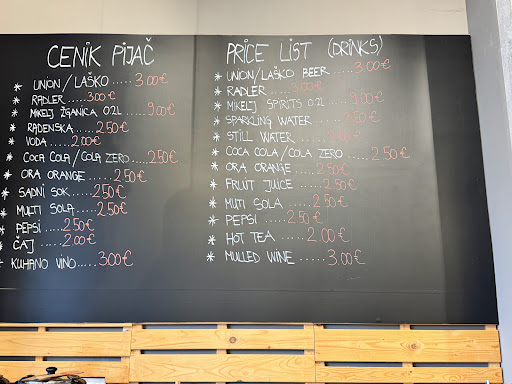 CENIK PIJAČ
* UNION/LAŠKO.....3.00€
* RADLER.....3.00€
* MIKELJ ŽGANICA 0.2L....9.00€
* RADENSKA.....2.50€
* VODA.....2.00€
* COCA COLA/COLA ZERO.....2.50€
* ORA ORANGE.....2.50€
* SADNI SOK.....2.50€
* MULTI SOLA.....2.50€
* PEPSI....2.50€
* ČAJ.....2.00€
* KUHANO VINO.....3.00€
PRICE LIST (DRINKS)
* UNION/LAŠKO BEER.....3.00€
* RADLER.....3.00€
* MIKELJ SPIRITS 0.2L....9.00€
* SPARKLING WATER.....2.50€
* STILL WATER.....
* COCA COLA/COLA ZERO.....2.50€
* ORA ORANGE.....2.50€
* FRUIT JUICE.....2.50€
* MUTI SOLA.....2.50€
* PEPSI.....2.50€
* HOT TEA.....2.00€
* MULLED WINE.....3.00€